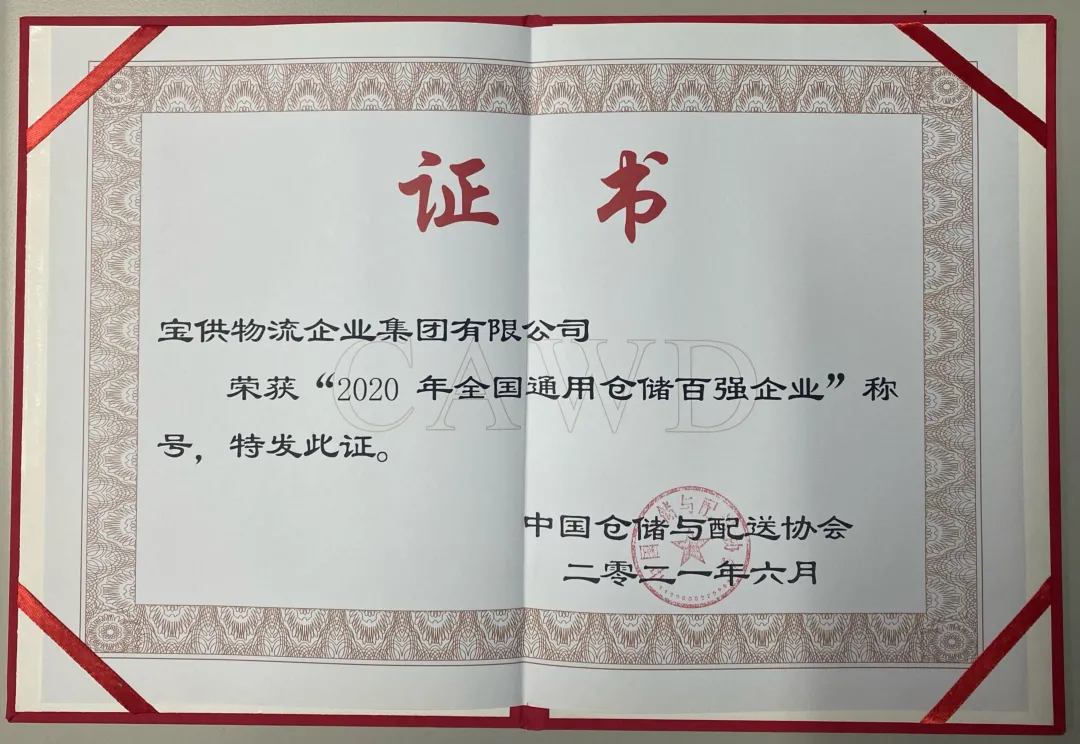 证 书
宝供物流企业集团有限公司
荣获“2020 年全国通用仓储百强企业”称
号，特发此证。
CAWD
中国仓储与配送协会
二零二一年六月